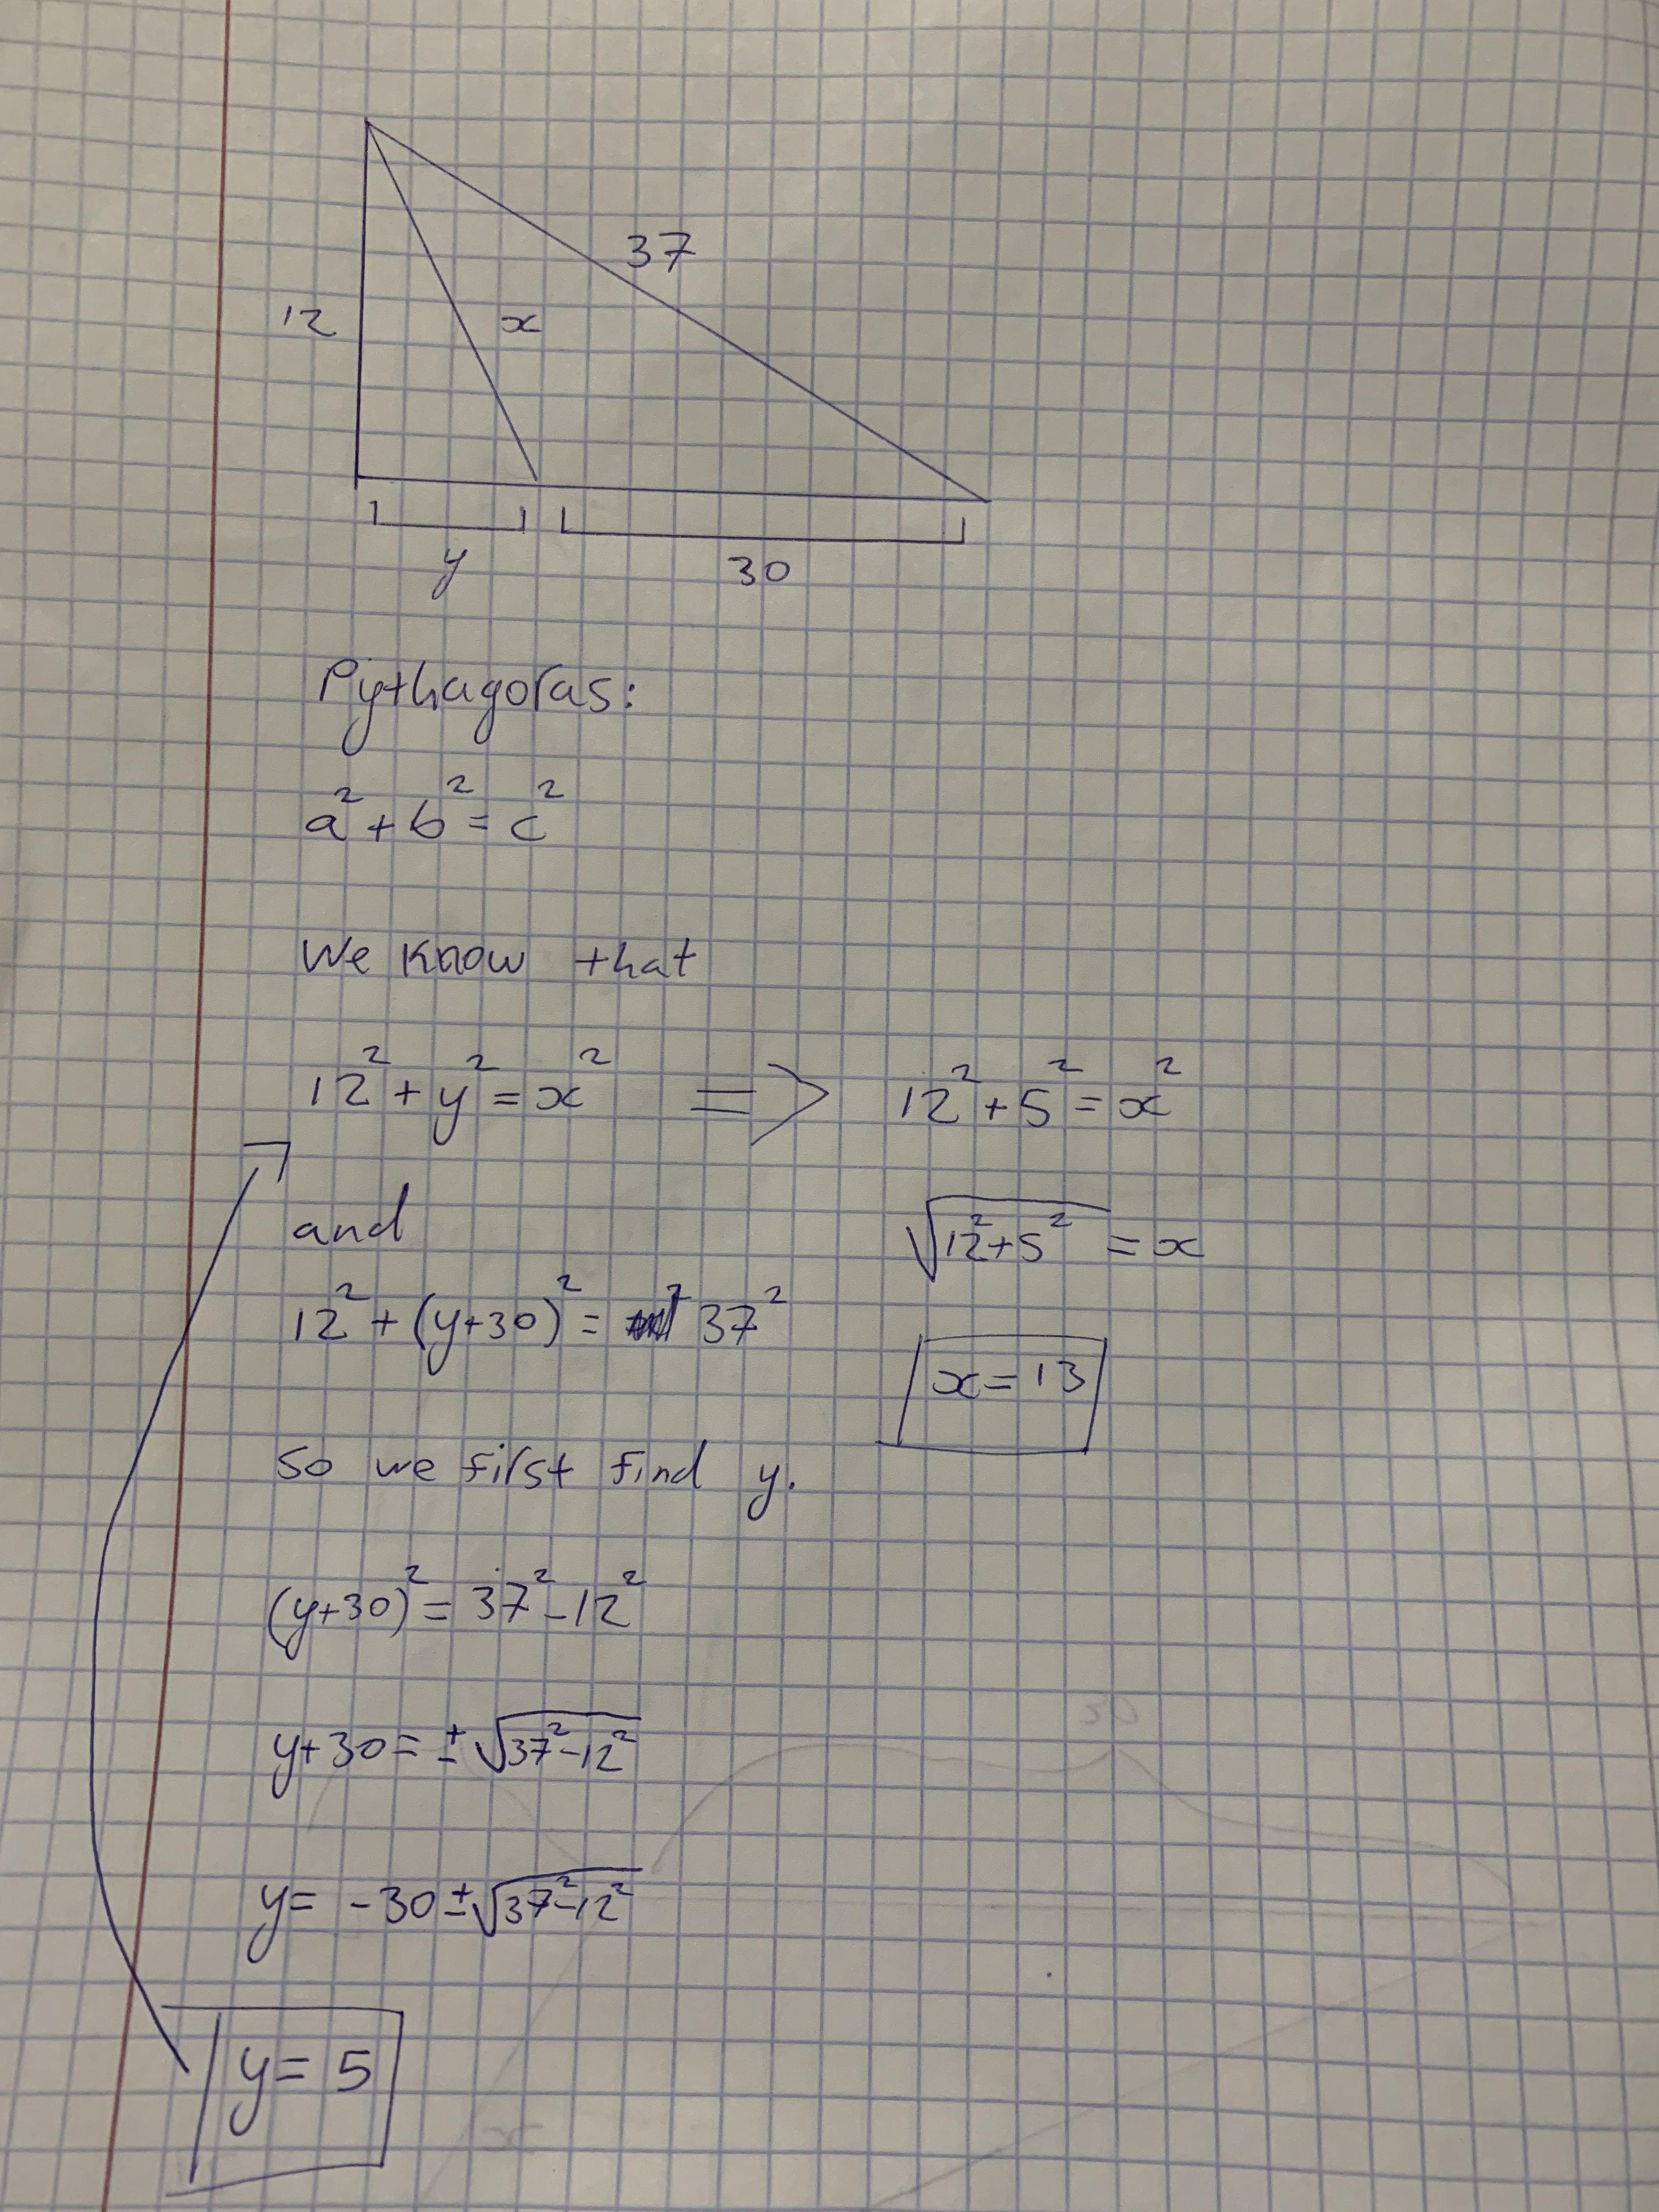 37
12
x
y
30
Pythagoras:
a² + b² = c²
We know that
12² + y² = x² => 12² + 5² = x²
and
√(12² + 5²) = x
12² + (y+30)² = 37²
x = 13
So we first find y.
(y+30)² = 37² - 12²
y+30 = ± √(37² - 12²)
y = -30 ± √(37² - 12²)
y = 5
30
x